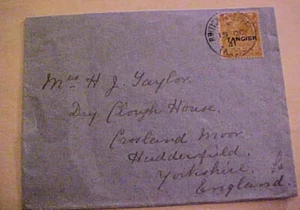 TANGIER
Mrs H. J. Taylor.
Dry Clough House.
Crosland Moor.
Huddersfield.
Yorkshire.
England.